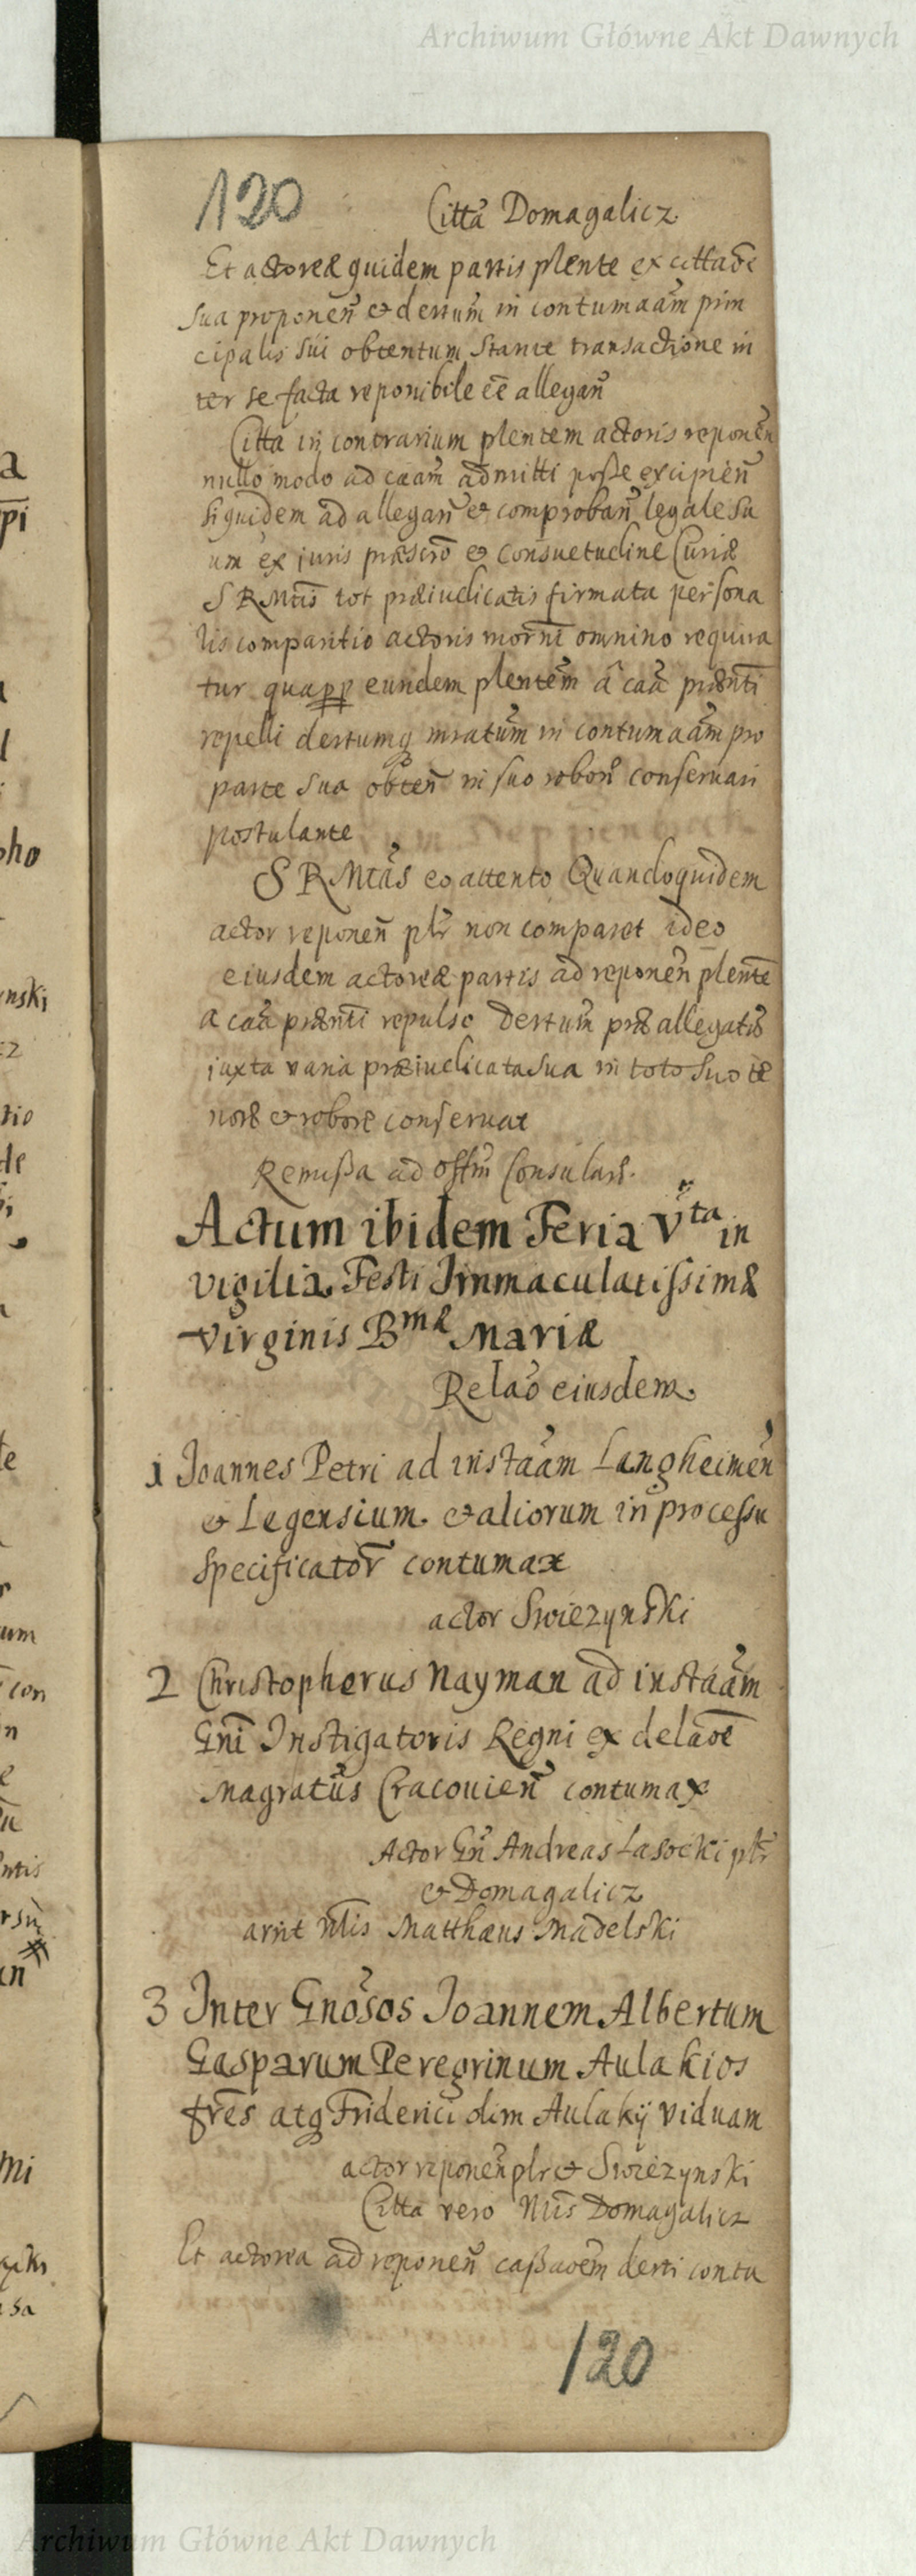 Archiwum Główne Akt Dawnych
120
Citta Domagalicz
Et actoreæ quidem partis plente ex cittaõe
sua proponeñ et dertum in contumaãm prin
cipalis sui obtentum stante transactione in
ter se facta reponibile eẽ allegañ
Citta in contrarium plentem actoris reponeñ
nullo modo ad caam admitti posse excipieñ
siquidem ad allegañ et comprobañ legale su
um ex juris præscro et consuetudine Curiæ
S R Mtis tot præiudicatis firmata persona
lis comparitio actoris morni omnino requira
tur quapp eundem plentem â caã præñti
repelli dertumq mratum in contumaãm pro
parte sua obteñ in suo robore conservari
postulante
S R Mtas eo attento Quandoquidem
actor reponeñ plr non comparet ideo
eiusdem actoreæ partis ad reponeñ plente
a caã præñti repulso dertum præallegatũ
juxta varia præiudicata sua in toto suo te
nore et robore conservat
Remissa ad offm Consulare.
Actum ibidem Feria Vta in
vigilia Festi Immaculatissimæ
virginis Bmæ Mariæ
Relaõ eiusdem
1 Joannes Petri ad instaãm Langheimeñ
et Legensium et aliorum in processu
specificator contumax
actor Swiezynski
2 Christopherus Nayman ad instaãm
Gni Instigatoris Regni ex delaõe
Magratus Cracovieñ contumax
Actor Gñ Andreas Lasocki plr
et Domagalicz
arnt Nlis Matthæus Madelski
3 Inter Gnosos Joannem Albertum
Gasparum Peregrinum Aulakios
frẽs atq Friderici olim Aulakij viduam
actor reponeñ plr et Swiezynski
Citta vero Nlis Domagalicz
Et actorea ad reponeñ cassaõem derti contu
120
Archiwum Główne Akt Dawnych